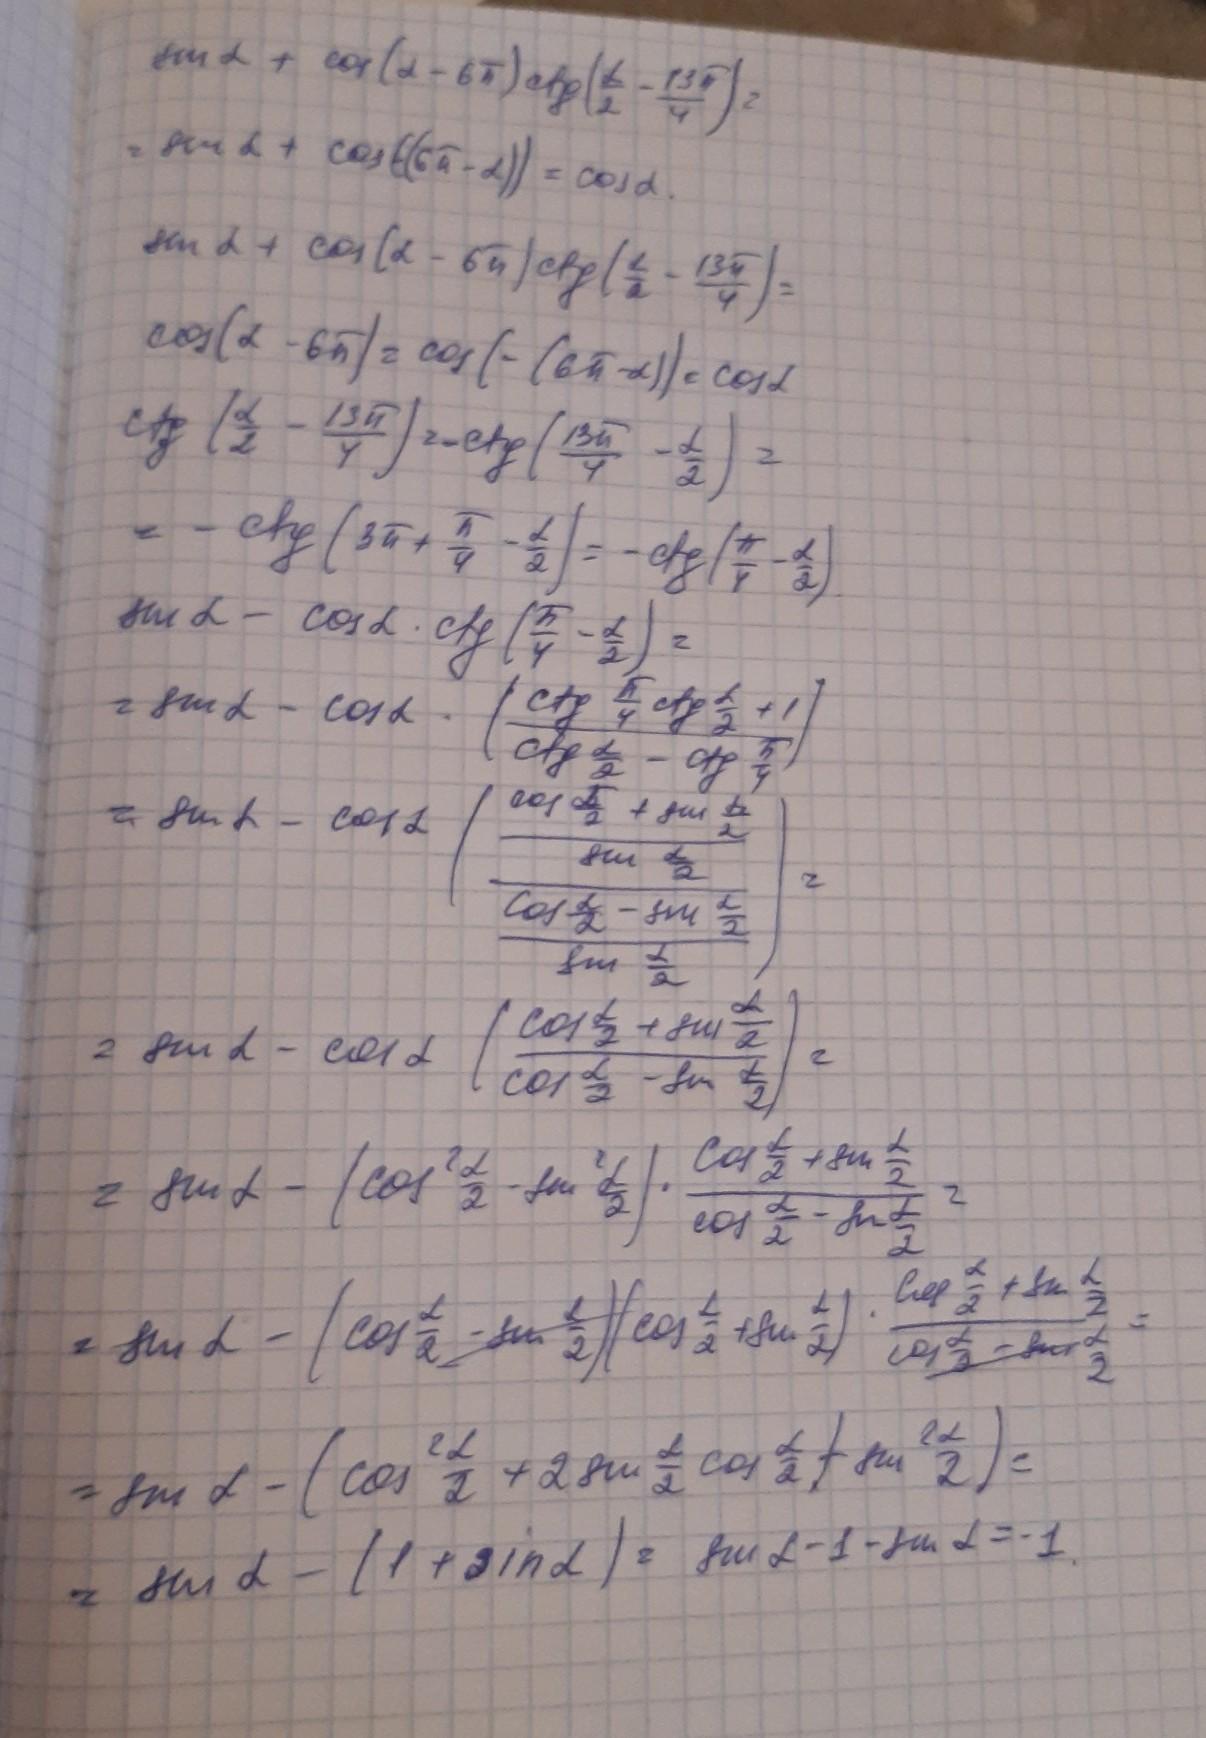 sin α + cos(α - 6π) ctg(α/2 - 13π/4) =
= sin α + cos(-(6π - α)) = cos α.
sin α + cos(α - 6π) ctg(α/2 - 13π/4) =
cos(α - 6π) = cos(-(6π - α)) = cos α
ctg(α/2 - 13π/4) = -ctg(13π/4 - α/2) =
= - ctg(3π + π/4 - α/2) = -ctg(π/4 - α/2).
sin α - cos α · ctg(π/4 - α/2) =
= sin α - cos α · ((ctg π/4 ctg α/2 + 1)/(ctg α/2 - ctg π/4))
= sin α - cos α (((cos α/2 + sin α/2)/(sin α/2))/((cos α/2 - sin α/2)/(sin α/2))) =
= sin α - cos α ((cos α/2 + sin α/2)/(cos α/2 - sin α/2)) =
= sin α - (cos² α/2 - sin² α/2) · (cos α/2 + sin α/2)/(cos α/2 - sin α/2) =
= sin α - (cos α/2 - sin α/2)(cos α/2 + sin α/2) · (cos α/2 + sin α/2)/(cos α/2 - sin α/2) =
= sin α - (cos² α/2 + 2 sin α/2 cos α/2 + sin² α/2) =
= sin α - (1 + sin α) = sin α - 1 - sin α = -1.